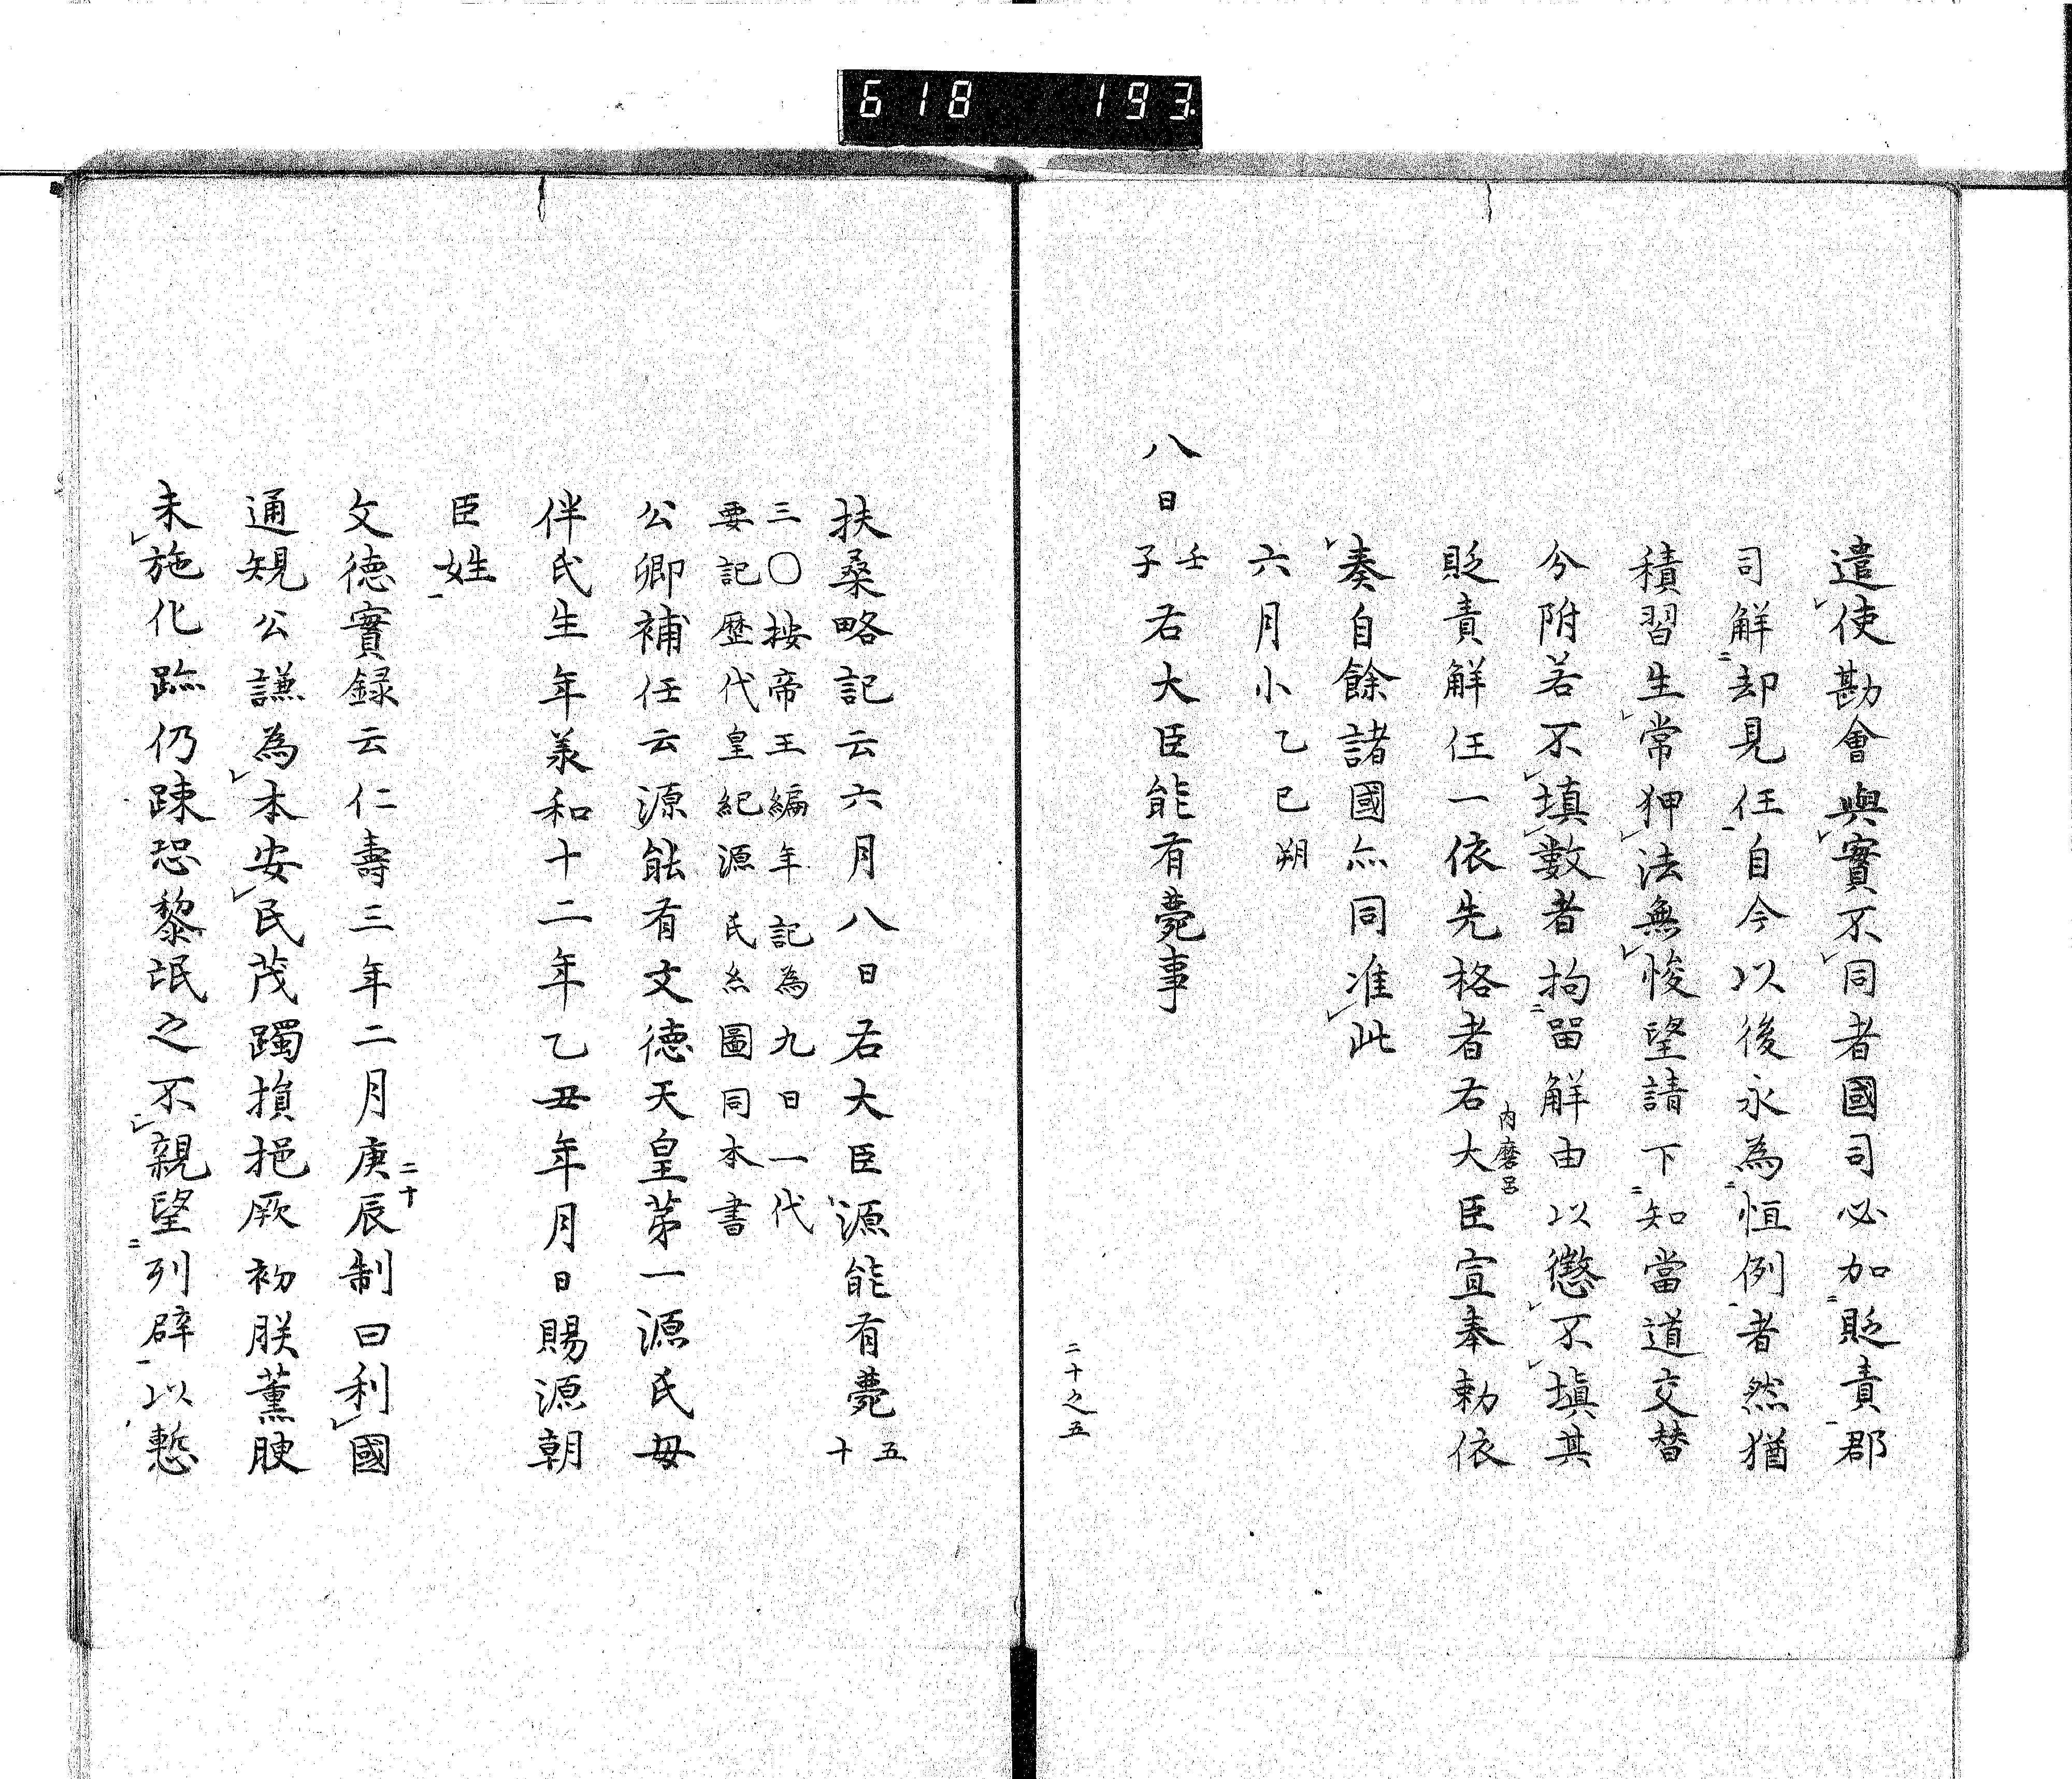 618 193
遣使勘會與實不同者國司必加貶責郡
司解却見任自今以後永為恒例者然猶
積習生常狎法無悛望請下知當道交替
分附若不填數者拘留解由以懲不填其
貶責解任一依先格者右大臣宣奉勅依
内麿公
奏自餘諸國亦同准此
六月小乙巳朔
八日壬子右大臣能有薨事
二十之五
扶桑略記云六月八日右大臣源能有薨五十
三〇按帝王編年記為九日一代
要記歴代皇紀源氏系圖同本書
公卿補任云源能有文德天皇第一源氏母
伴氏生年美和十二年乙丑年月日賜源朝
臣姓
文徳實録云仁壽三年二月庚辰制曰利國
二十
通規公謙為本安民茂躅損挹厥初朕薫腴
未施化跡仍踈恐黎氓之不親望列辟以慙